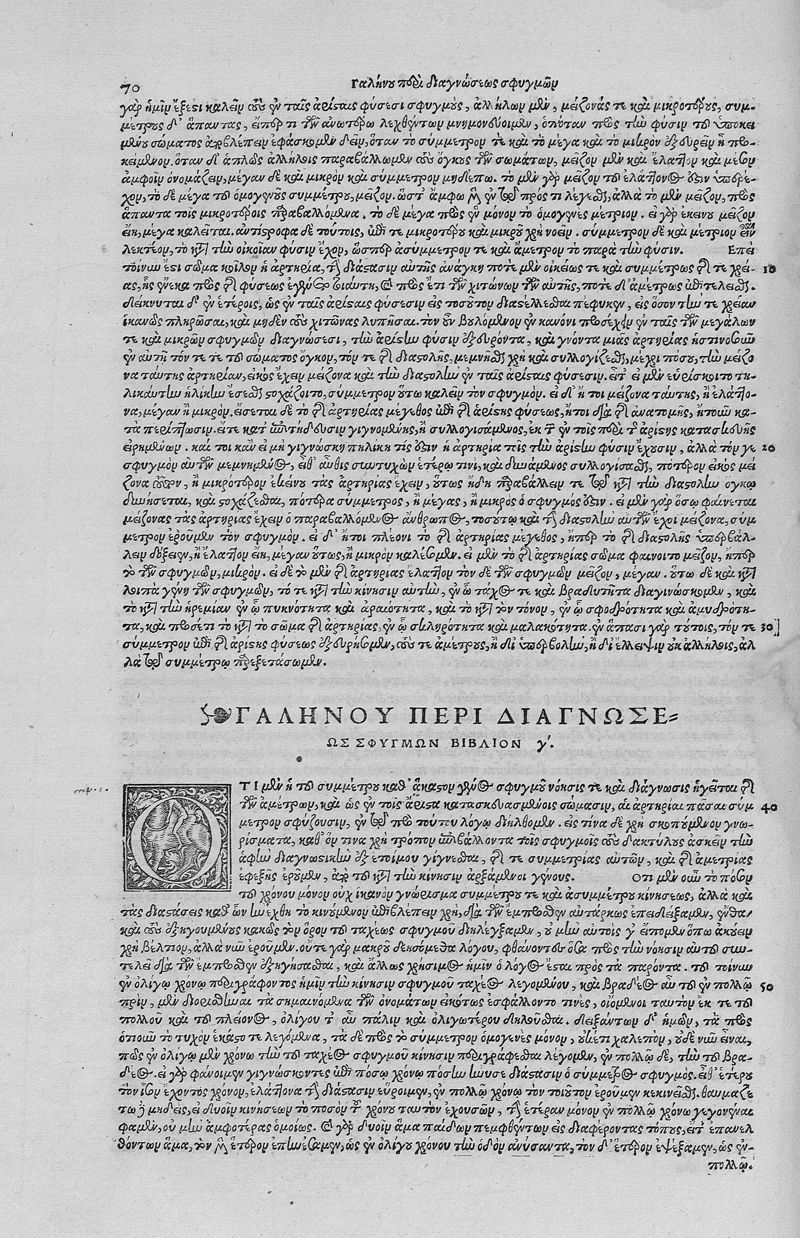 70 Γαλήνου περὶ διαγνώσεως σφυγμῶν
γὰρ ἡμῖν ἔξεστι καλεῖν τοὺς ἐν ταῖς ἀρίσταις φύσεσι σφυγμούς, ἀλλήλων μὲν, μείζονάς τε καὶ μικροτέρους, συμ-
μέτρους δ' ἅπαντας, εἴπερ τι τῶν ἀνωτέρω λεχθέντων μνημονεύοιμεν, ὁπόταν πρὸς τὴν φύσιν τοῦ ὑποκει
μένου σώματος ἀποβλέπειν ἐφάσκομεν δεῖν, ὅταν τὸ σύμμετρόν τε καὶ τὸ μέγα καὶ τὸ μικρὸν ἐξευρεῖν ᾖ προ-
κείμενον. ὅταν δ' ἁπλῶς ἀλλήλοις παραβάλλωμεν τοὺς ὄγκους τῶν σωμάτων, μεῖζον μὲν καὶ ἔλαττον καὶ
ἀμφοῖν ὀνομάζειν, μέγαν δὲ καὶ μικρὸν καὶ σύμμετρον μηδέπω. τὸ μὲν γὰρ μεῖζον τοῦ ἐλάττονος ἐστὶν ὑπερέ-
χον, τὸ δὲ μέγα τοῦ ὁμογενοῦς συμμέτρου, μεῖζον. ὥστ' ἄμφω μὲν ἐν τῷ πρός τι λέγεσθαι, ἀλλὰ τὸ μὲν μεῖζον, πρὸς
ἅπαντα τοῖς μικροτέροις παραβαλλόμενα, τὸ δὲ μέγα πρὸς ἓν μόνον τὸ ὁμογενὲς μέτριον. εἰ γὰρ ἐκείνου μεῖζον
εἴη, μέγα καλεῖται. ἀντίστροφα δὲ τούτοις, ἐπὶ τε μικροτέρου καὶ μικροῦ χρὴ νοεῖν. σύμμετρον δὲ καὶ μέτριον ἓν
λεκτέον, τὸ κατὰ τὴν οἰκείαν φύσιν ἔχον, ὥσπερ ἀσύμμετρόν τε καὶ ἄμετρον τὸ παρὰ τὴν φύσιν. Ἐπεὶ
τοίνυν ἐστὶ σῶμα κοῖλον ἡ ἀρτηρία, τὴν διάστασιν αὐτῆς ἀνάγκη ποτὲ μὲν οἰκείως τε καὶ συμμέτρως τῆς τε χρεί- 10
ας, ἧς ἕνεκα πρὸς τῆς φύσεως ἐγένετο τοιαύτη, καὶ πρὸς ἔτι τῶν χιτώνων τῶν αὐτῆς, ποτὲ δ' ἀμέτρως ἐπιτελεῖσθαι.
δείκνυται δ' ἐν ἑτέροις, ὡς ἐν ταῖς ἀρίσταις φύσεσιν εἰς τοσοῦτον διαστέλλεσθαι πέφυκεν, εἰς ὅσον τήν τε χρείαν
ἱκανῶς πληρῶσαι, καὶ μηδὲν τοὺς χιτῶνας λυπῆσαι. τὸν οὖν βουλόμενον ἐν κανόνι προσέχειν ἐν ταῖς τῶν μεγάλων
τε καὶ μικρῶν σφυγμῶν διαγνώσεσι, τὴν ἀρίστην φύσιν ἐξευρόντα, καὶ γνόντα μιᾶς ἀρτηρίας ἡστινοσοῦν
ἐν αὐτῇ τόν τε τοῦ σώματος ὄγκον, τόν τε τῆς διαστολῆς, μεμνῆσθαι χρὴ καὶ συλλογίζεσθαι, μέχρι πόσου, τὴν μείζο
να ταύτης ἀρτηρίαν, εἰκὸς ἔχειν μείζονα καὶ τὴν διαστολὴν ἐν ταῖς ἀρίσταις φύσεσιν. εἶτ' εἰ μὲν εὑρίσκοιτο τη-
λικαύτην ἡλίκην ἔσεσθαι στοχάζοιτο, σύμμετρον οὕτω καλεῖν τὸν σφυγμόν. εἰ δ' ἤτοι μείζονα ταύτης, ἢ ἐλάττο-
να, μέγαν ἢ μικρόν. εἴσεται δὲ τὸ τῆς ἀρτηρίας μέγεθος ἐπὶ τῆς ἀρίστης φύσεως, ἤτοι διὰ τῆς ἀνατομῆς, ἤτοι κα-
τὰ περίπτωσιν, εἴτε κατ' ἐπιτήδευσιν γιγνομένης, ἢ συλλογισάμενος, ἐκ τῶν ἐν τοῖς περὶ τῆς ἀρίστης κατασκευῆς
εἰρημένων. καί τοι κἂν εἰ μὴ γιγνώσκῃ πηλίκη τίς ἐστιν ἡ ἀρτηρία τοῖς τὴν ἀρίστην φύσιν ἔχουσιν, ἀλλὰ τόν γε 20
σφυγμὸν αὐτῶν μεμνημένος, εἶθ' αὖθις συντυχὼν ἑτέρῳ τινὶ, καὶ δυνάμενος συλλογίσασθαι, πότερον εἰκὸς μεί
ζονα τοῦτον, ἢ μικροτέραν ἐκείνου τὰς ἀρτηρίας ἔχειν, οὕτως ἤδη παραβάλλειν τε τῆς διαστολῆς τῷ ὄγκῳ
δυνήσεται, καὶ στοχάζεσθαι, πότερα σύμμετρος, ἢ μέγας, ἢ μικρὸς ὁ σφυγμός ἐστιν. εἰ μὲν γὰρ ὅσῳ φαίνεται
μείζονας τὰς ἀρτηρίας ἔχειν ὁ παραβαλλόμενος ἄνθρωπος, τοσούτῳ καὶ τὴν διαστολὴν αὐτῶν ἔχει μείζονα, σύμ
μετρον ἐροῦμεν τὸν σφυγμόν. εἰ δ' ἤτοι πλέονι τὸ τῆς ἀρτηρίας μέγεθος, ἤπερ τὸ τῆς διαστολῆς ὑπερβάλ-
λειν δόξειεν, ἢ ἔλαττον εἴη, μέγαν οὕτως, ἢ μικρὸν καλέσομεν. εἰ μὲν τὸ τῆς ἀρτηρίας σῶμα φαίνοιτο μεῖζον, ἤπερ
τὸ τῶν σφυγμῶν, μικρόν. εἰ δὲ τὸ μὲν τῆς ἀρτηρίας ἔλαττον τὸν δὲ τῶν σφυγμῶν μεῖζον, μέγαν. οὕτω δὲ καὶ κατὰ
λοιπὰ γένη τῶν σφυγμῶν, τό τε κατὰ τὴν κίνησιν αὐτὴν, ἐν ᾧ τάχος τε καὶ βραδυτῆτα διαγινώσκομεν, καὶ
τὸ κατὰ τὴν ἠρεμίαν ἐν ᾧ πυκνότητα καὶ ἀραιότητα, καὶ τὸ κατὰ τὸν τόνον, ἐν ᾧ σφοδρότητα καὶ ἀμυδρότη-
τα, καὶ προσέτι τὸ κατὰ τὸ σῶμα τῆς ἀρτηρίας, ἐν ᾧ σκληρότητα καὶ μαλακότητα. ἐν ἅπασι γὰρ τούτοις, τόν τε 30
σύμμετρον ἐπὶ τῆς ἀρίστης φύσεως ἐξευρήσομεν, τούς τε ἀμέτρους, ἢ δι' ὑπερβολὴν, ἢ δι' ἔλλειψιν οὐκ ἀλλήλοις, ἀλ
λὰ τῷ συμμέτρῳ παρεξετάσομεν.
ΓΑΛΗΝΟΥ ΠΕΡΙ ΔΙΑΓΝΩΣΕ-
ΩΣ ΣΦΥΓΜΩΝ ΒΙΒΛΙΟΝ γ'.
ΟΤΙ μὲν ἡ τοῦ συμμέτρου καθ' ἕκαστον γένος σφυγμοῦ νόησίς τε καὶ διάγνωσις ἡγεῖται τῆς
τῶν ἀμέτρων, καὶ ὡς ἐν τοῖς ἄριστα κατασκευασμένοις σώμασιν, αἱ ἀρτηρίαι πᾶσαι σύμ 40
μετρον σφύζουσιν, ἐν τῷ πρὸ τούτου λόγῳ διήλθομεν. εἰς τίνα δὲ χρὴ σκοπούμενον γνω-
ρίσματα, καθ' ὅν τινα χρὴ τρόπον ἐπιβάλλοντα τοῖς σφυγμοῖς τοὺς δακτύλους ἀσκεῖν τὴν
ἁφὴν διαγνωστικὴν ἐξ ἑτοίμου γίγνεσθαι, τῆς τε συμμετρίας αὐτῶν, καὶ τῆς ἀμετρίας
ἐφεξῆς ἐροῦμεν, ἀπὸ τοῦ κατὰ τὴν κίνησιν ἀρξάμενοι γένους. Οτι μὲν οὖν τὸ ποσὸν
τοῦ χρόνου μόνον οὐχ ἱκανὸν γνώρισμα συμμέτρου τε καὶ ἀσυμμέτρου κινήσεως, ἀλλὰ καὶ
τὰς διαστάσεις καθ' ὧν ἠνέχθη τὸ κινούμενον ἐπιβλέπειν χρὴ, διὰ τῶν ἔμπροσθεν αὐτάρκως ἐπεδείξαμεν, ἔνθα
καὶ τοὺς ἐξηγουμένους κακῶς τὸν ὅρον τοῦ ταχέως σφυγμοῦ διηλέγξαμεν, οὐ μὴν αὐτοῖς γ' εἴπομεν ὅπως ἀκούειν
χρὴ βέλτιον, ἀλλὰ νῦν ἐροῦμεν. οὔτε γὰρ μακροῦ δεησόμεθα λόγου, φθάνοντος ὅσα πρὸς τὴν νόησιν αὐτοῦ συν-
τελεῖ διὰ τῶν ἔμπροσθεν ἐξηγήσασθαι, καὶ ἄλλως χρήσιμος ἡμῖν ὁ λόγος ἔσται πρὸς τὰ παρόντα. τοῦ τοίνυν
ἐν ὀλίγῳ χρόνῳ περιγράφοντος ἡμῖν τὴν κίνησιν σφυγμοῦ ταχέος λεγομένου, καὶ βραδέος αὖ τοῦ ἐν πολλῷ 50
πρὶν, μὲν διορίσασθαι τὰ σημαινόμενα τῶν ὀνομάτων εἰκότως ἐσφάλλοντό τινες, οἰόμενοι ταυτὸν ἔκ τε τοῦ
πολλοῦ καὶ τοῦ πλείονος, ὀλίγου τ' αὖ πάλιν καὶ ὀλιγωτέρου δηλοῦσθαι. δειξάντων δ' ἡμῶν, τὰ πρὸς
ὁτιοῦν τὸ τυχὸν ἑκάστοτε λεγόμενα, τὰ δὲ πρὸς τὸ σύμμετρον ὁμογενὲς μόνον, οὐκέτι χαλεπὸν, οὐδὲ νῦν εἶναι,
πῶς ἐν ὀλίγῳ μὲν χρόνῳ τὴν τοῦ ταχέος σφυγμοῦ κίνησιν περιγράφεσθαι λέγομεν, ἐν πολλῷ δὲ, τὴν τοῦ βρα-
δέος. εἰ γὰρ φανοίμεν γιγνώσκοντες ἐπὶ πόσῳ χρόνῳ πόσην ἤνυσε διάστασιν ὁ σύμμετρος σφυγμός, εἶθ' ἑτέρου
τὸν ἴσον ἔχοντος χρόνον, ἐλάττονα τὴν διάστασιν εὕροιμεν, ἐν πολλῷ χρόνῳ τὸν τοιοῦτον ἐροῦμεν κεκινεῖσθαι. θαυμαζέ
τω γὰρ μηδεὶς, εἰ δυοῖν κινήσεων τὸ ποσὸν τοῦ χρόνου ταυτὸν ἐχουσῶν, τὴν ἑτέραν μόνον ἐν πολλῷ χρόνῳ γεγονέναι
φαμὲν, οὐ μὴν ἀμφοτέρας ὁμοίως. καὶ γὰρ δυοῖν ἅμα παίδων πεμφθέντων εἰς διαφέροντας τόπους, εἶτ' ἐπανελ
θόντων ἅμα, τὸν μὲν ἕτερον ἐπῃνέσαμεν, ὡς ἐν ὀλίγῳ χρόνῳ τὴν ὁδὸν ἀνύσαντα, τὸν δ' ἕτερον ἐψέξαμεν, ὡς ἐν
πολλῷ.